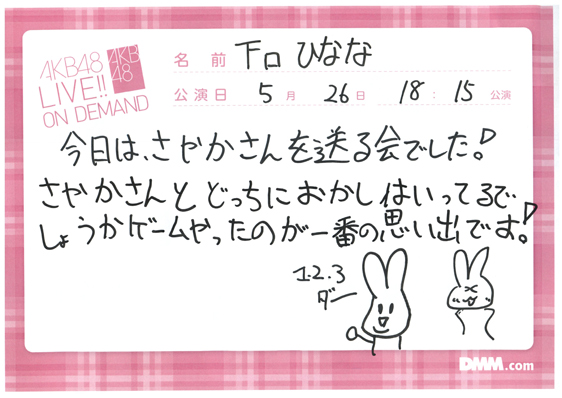 AKB48
LIVE!!
ON DEMAND
AKB
48
名前 下口 ひなな
公演日 5月 26日 18:15 公演
今日は、さやかさんを送る会でした!
さやかさんと どっちにおかしはいってるで
しょうかゲームやったのが一番の思い出です!
1.2.3
ダー
DMM.com